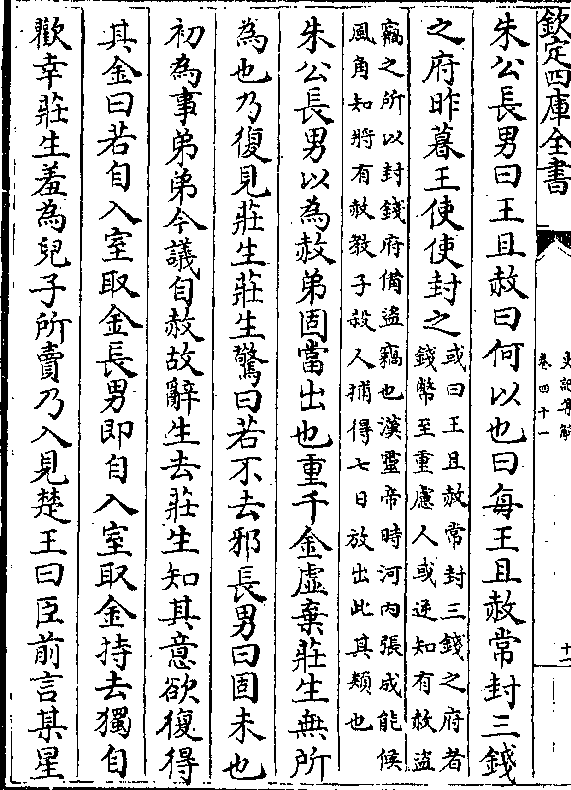 欽定四庫全書
史記集解
卷四十一
十一
朱公長男曰王且赦曰何以也曰每王且赦常封三錢
之府昨暮王使使封之
或曰王且赦常封三錢之府者
錢幣至重慮人或逆知有赦盜
竊之所以封錢府備盜竊也漢靈帝時河内張成能候
風角知將有赦教子殺人捕得七日放出此其類也
朱公長男以為赦弟固當出也重千金虚棄莊生無所
為也乃復見莊生莊生驚曰若不去邪長男曰固未也
初為事弟弟今議自赦故辭生去莊生知其意欲復得
其金曰若自入室取金長男即自入室取金持去獨自
歡幸莊生羞為兒子所賣乃入見楚王曰臣前言某星